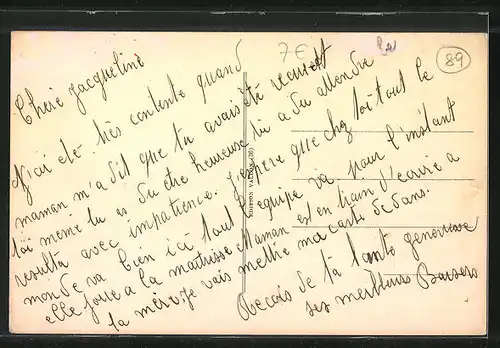 7€
89
Chère Jacqueline
J'ai été très contente quand
maman m'a dit que tu avais été reçue et
toi même tu as du être heureuse tu a du attendre le
resultat avec impatience. J'espère que chez toi tout le
monde va bien ici tout l'equipe va pour l'instant
elle joue a la maitresse Maman est en train d'écrire a
ta mère je vais mettre ma carte dedans.
Recois de ta tante genevieve
ses meilleurs Baisers